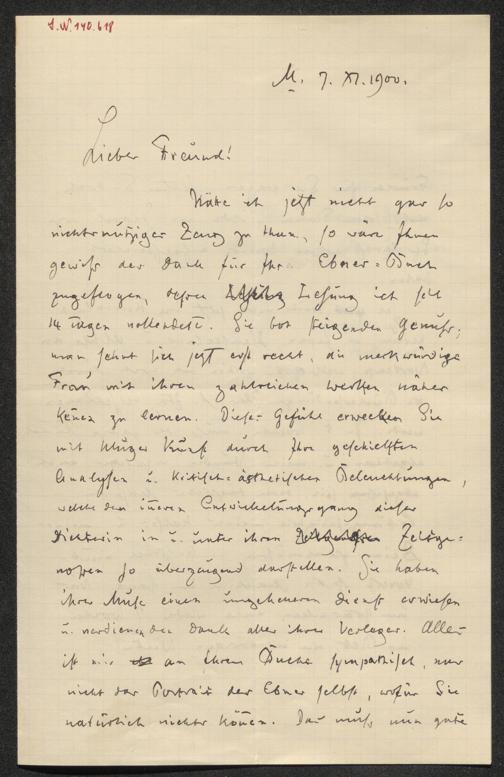 I.N. 140.618
M. 7. XI. 1900.
Lieber Freund!
Hätte ich jetzt nicht gar so
nichtsnutziges Zeug zu thun, so wäre Ihnen
gewiss der Dank für Ihr Ebner-Buch
zugeflogen, dessen Lesung ich seit
14 Tagen vollendete. Sie bot steigenden Genuss;
man sehnt sich jetzt erst recht, die merkwürdige
Frau mit ihren zahlreichen Werken näher
kennen zu lernen. Dieses Gefühl erwecken Sie
mit kluger Kunst durch Ihre geschickten
Analysen u. kritisch-ästhetischen Beleuchtungen,
welche den inneren Entwickelungsgang dieser
Dichterin in u. unter ihren Zeitge-
nossen so überzeugend darstellen. Sie haben
ihrer Muse einen ungeheueren Dienst erwiesen
u. verdienen den Dank aller ihrer Verleger. Alles
ist mir an Ihrem Buche sympathisch, nur
nicht das Portrait der Ebner selbst, wofür Sie
natürlich nichts können. Das muss nun gute